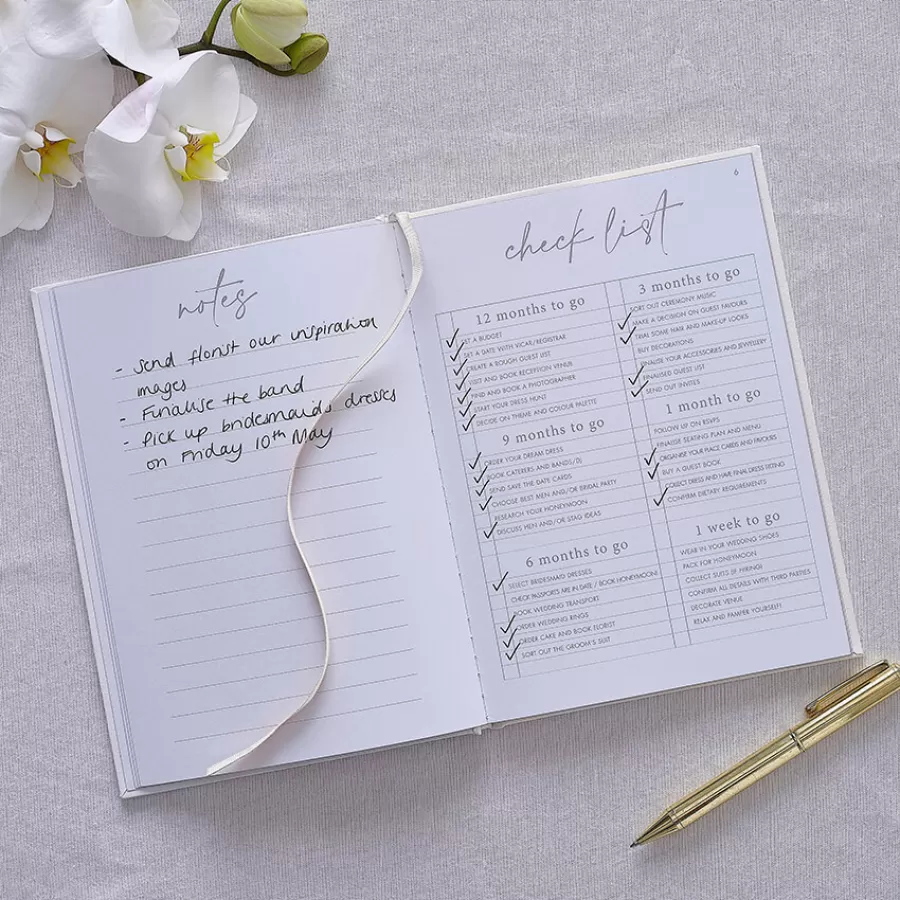 notes
- Send florist our inspiration
images
- Finalise the band
- Pick up bridesmaids dresses
on Friday 10th May
6
check list
12 months to go
SET A BUDGET
SET A DATE WITH VICAR/REGISTRAR
CREATE A ROUGH GUEST LIST
VISIT AND BOOK RECEPTION VENUE
FIND AND BOOK A PHOTOGRAPHER
START YOUR DRESS HUNT
DECIDE ON THEME AND COLOUR PALETTE
9 months to go
ORDER YOUR DREAM DRESS
BOOK CATERERS AND BANDS/DJ
SEND SAVE THE DATE CARDS
CHOOSE BEST MEN AND/OR BRIDAL PARTY
RESEARCH YOUR HONEYMOON
DISCUSS HEN AND/OR STAG IDEAS
6 months to go
SELECT BRIDESMAID DRESSES
CHECK PASSPORTS ARE IN DATE / BOOK HONEYMOON!
BOOK WEDDING TRANSPORT
ORDER WEDDING RINGS
ORDER CAKE AND BOOK FLORIST
SORT OUT THE GROOM'S SUIT
3 months to go
SORT OUT CEREMONY MUSIC
MAKE A DECISION ON GUEST FAVOURS
TRIAL SOME HAIR AND MAKE-UP LOOKS
BUY DECORATIONS
FINALISE YOUR ACCESSORIES AND JEWELLERY
FINALISED GUEST LIST
SEND OUT INVITES
1 month to go
FOLLOW UP ON RSVPS
FINALISE SEATING PLAN AND MENU
ORGANISE YOUR PLACE CARDS AND FAVOURS
BUY A GUEST BOOK
COLLECT DRESS AND HAVE FINAL DRESS FITTING
CONFIRM DIETARY REQUIREMENTS
1 week to go
WEAR IN YOUR WEDDING SHOES
PACK FOR HONEYMOON
COLLECT SUITS (IF HIRING)
CONFIRM ALL DETAILS WITH THIRD PARTIES
DECORATE VENUE
RELAX AND PAMPER YOURSELF!